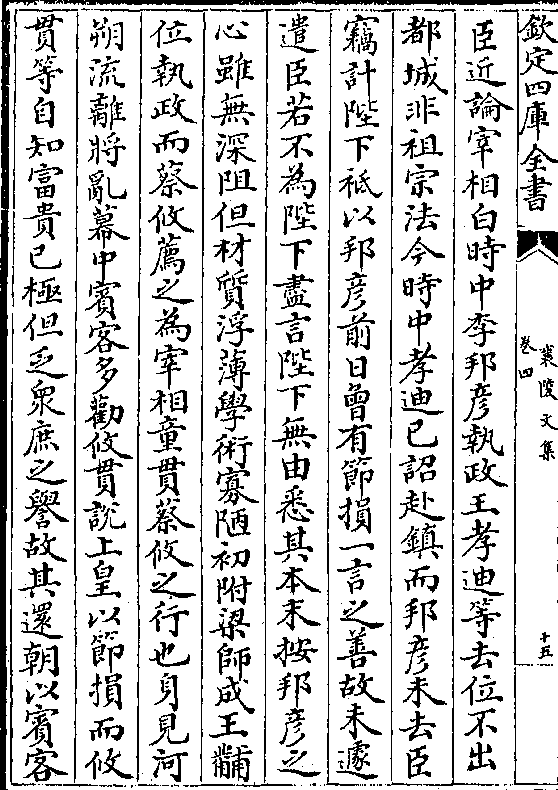 欽定四庫全書
襄陵文集
卷四
十五
臣近論宰相白時中李邦彦執政王孝迪等去位不出
都城非祖宗法今時中孝迪已詔赴鎮而邦彦未去臣
竊計陛下祗以邦彦前日曾有節損一言之善故未遽
遣臣若不為陛下盡言陛下無由悉其本末按邦彦之
心雖無深阻但材質浮薄學術寡陋初附梁師成王黼
位執政而蔡攸薦之為宰相童貫蔡攸之行也身見河
朔流離將亂幕中賓客多勸攸貫說上皇以節損而攸
貫等自知富貴已極但乏衆庶之譽故其還朝以賓客